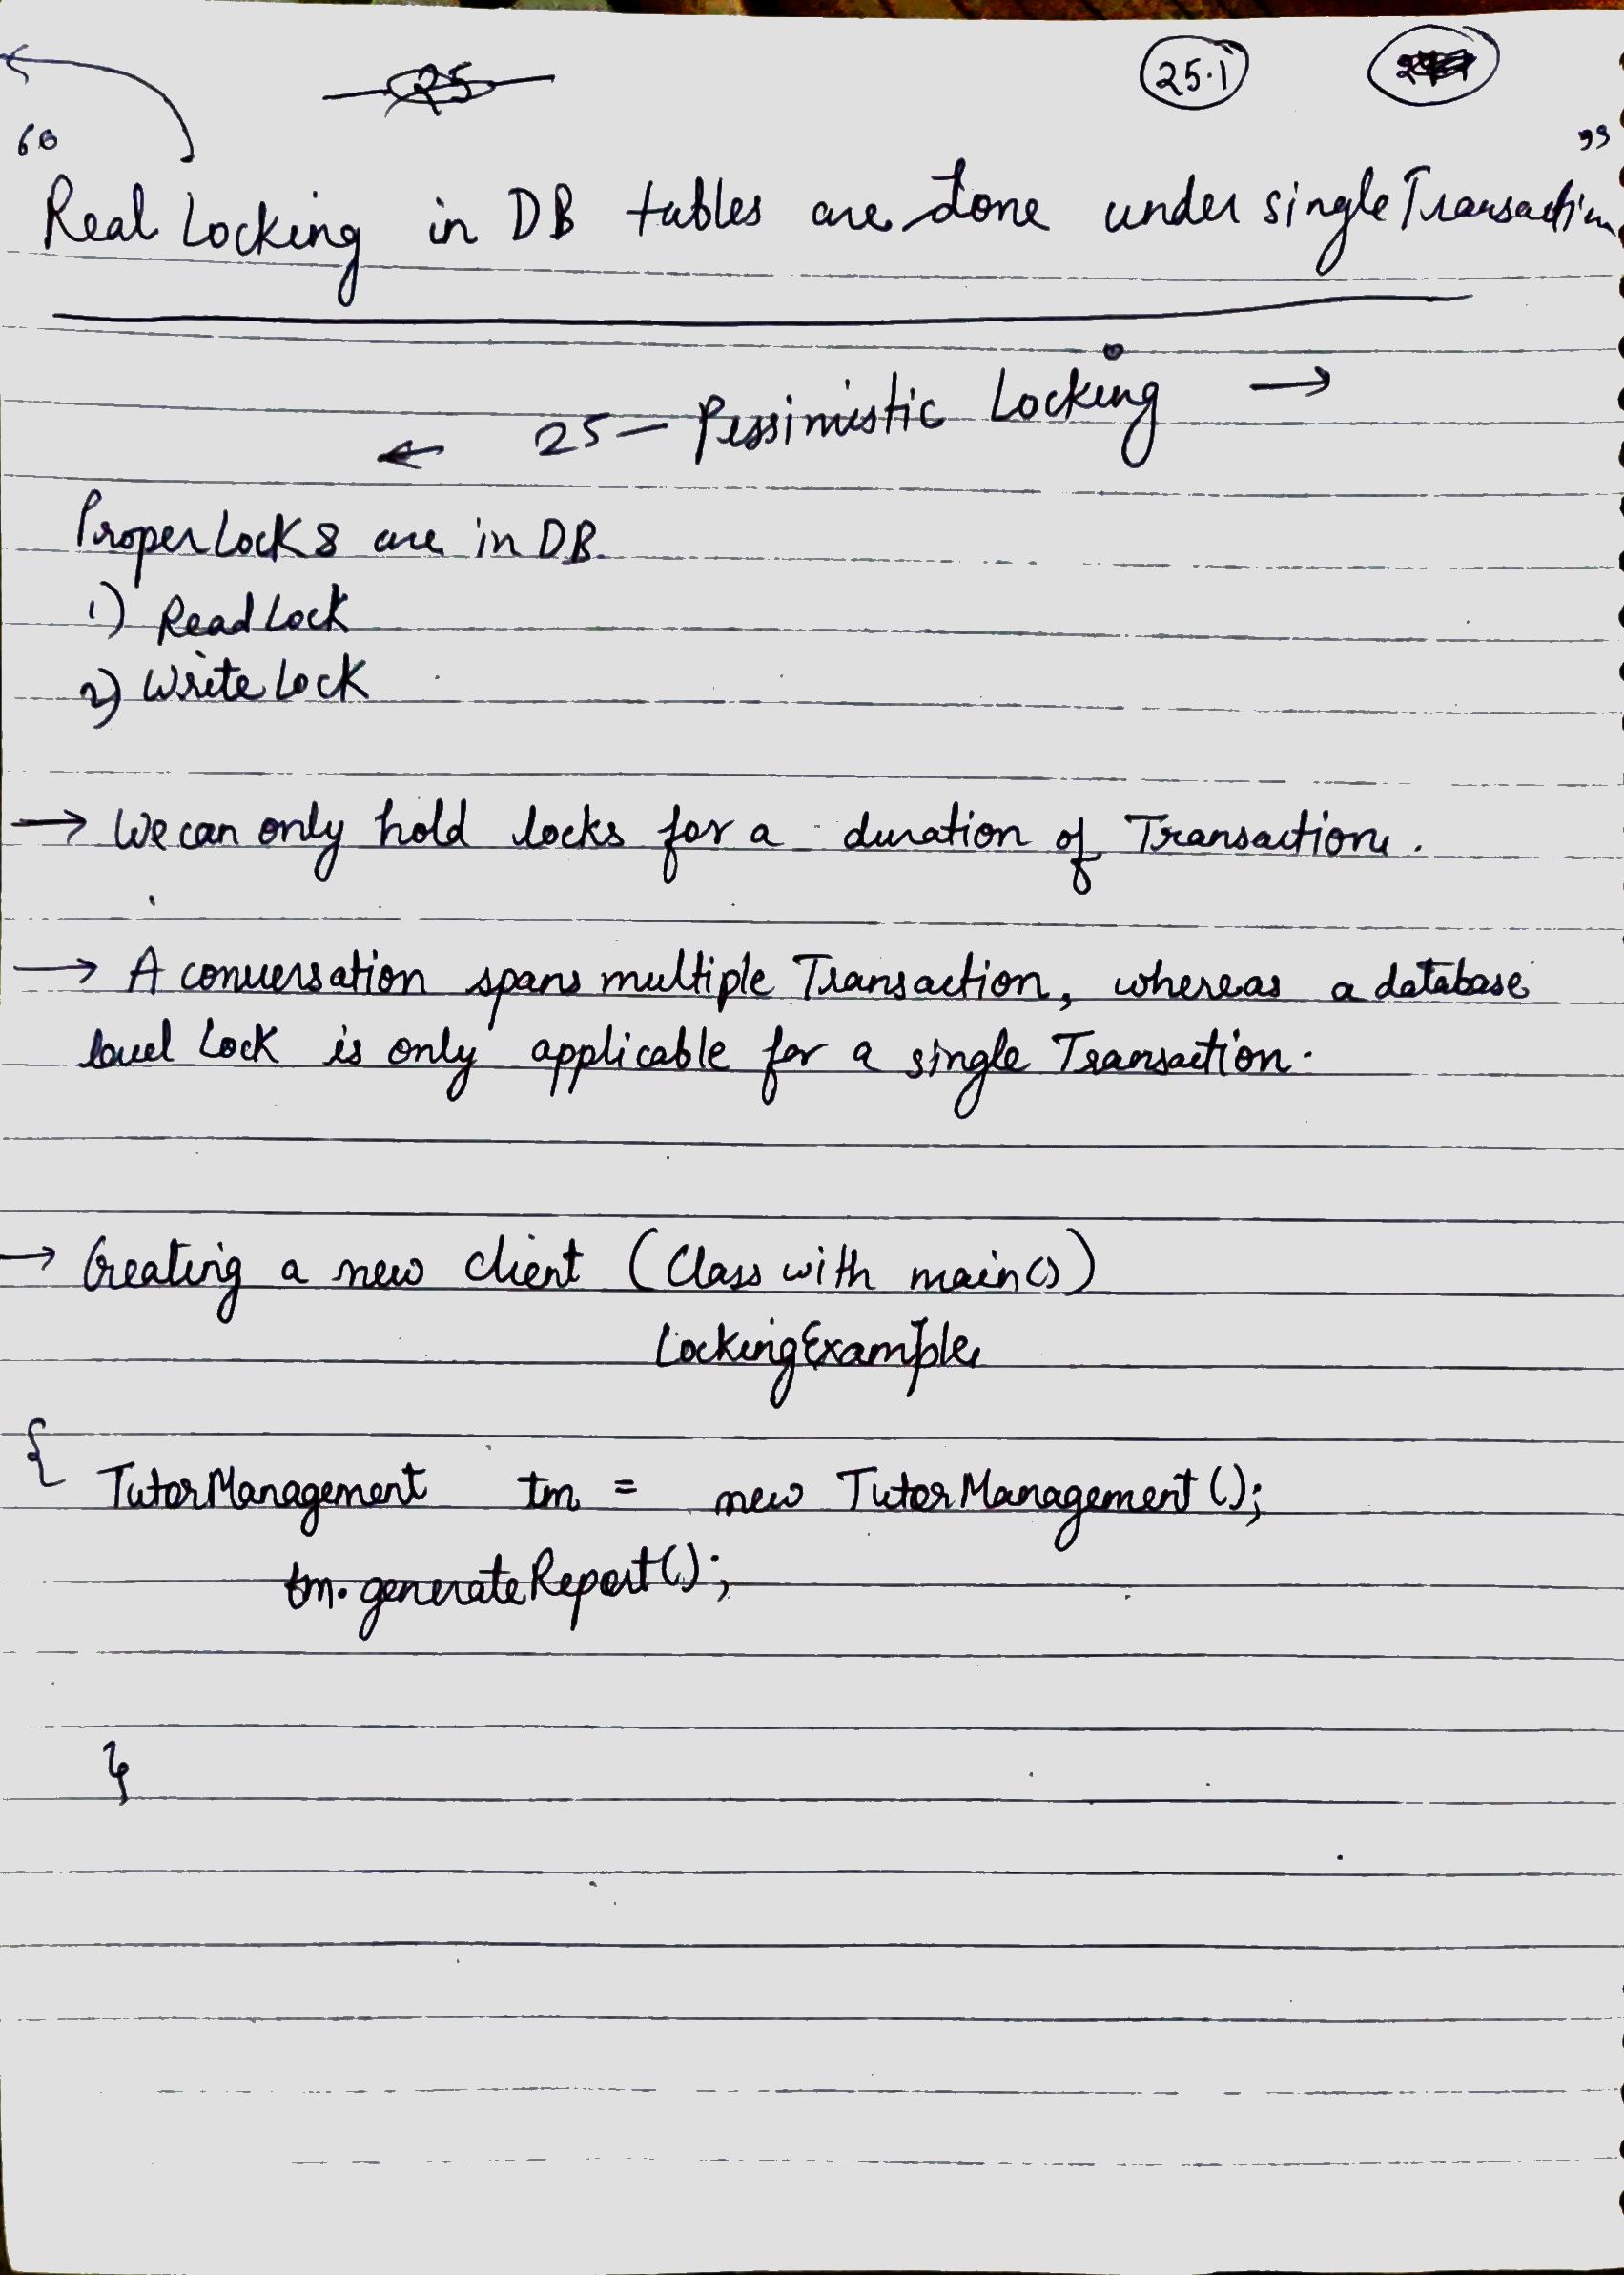 25
25.1
"Real Locking in DB tables are done under single Transaction"
← 25 — Pessimistic Locking →
Proper Locks are in DB.
1) Read Lock
2) Write Lock
→ We can only hold locks for a duration of Transaction.
→ A conversation spans multiple Transaction, whereas a database
level Lock is only applicable for a single Transaction.
→ Creating a new client (Class with main())
LockingExample
{ TutorManagement tm = new TutorManagement();
tm.generateReport();
}